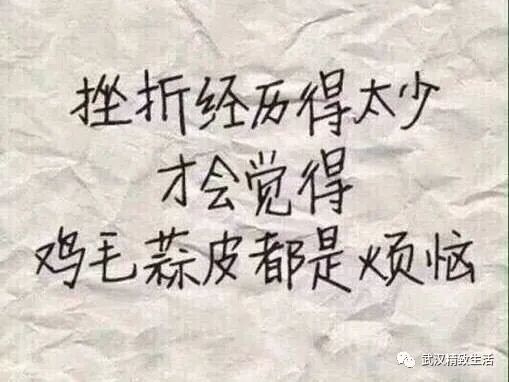 挫折经历得太少
才会觉得
鸡毛蒜皮都是烦恼
武汉精致生活